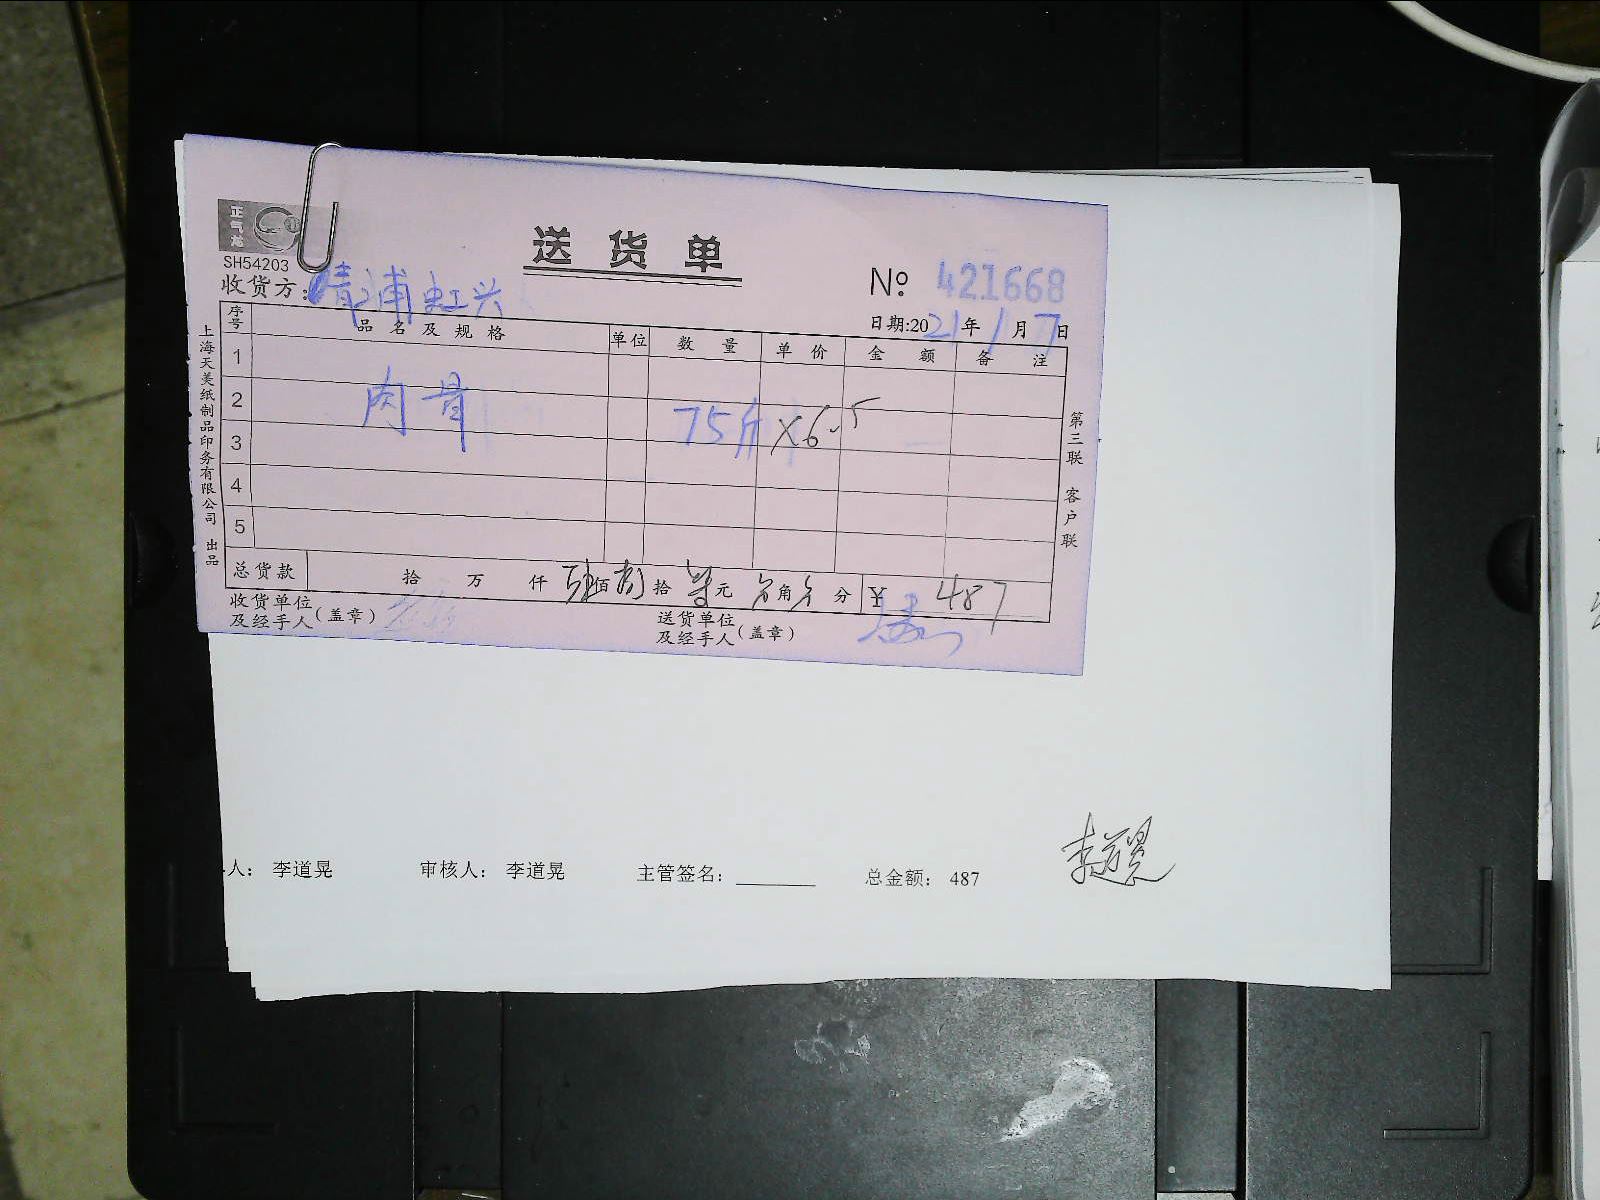 正气龙
SH54203
送货单
№ 421668
收货方:青浦虹兴
日期:2021年1月7日
序号 品名及规格 单位 数量 单价 金额 备注
1
2 肉骨 75斤 ×6.5
3
4
5
总货款 拾 万 仟 肆佰捌拾 柒元 零角零分 ¥ 487
收货单位及经手人(盖章)
送货单位及经手人(盖章)
上海天美纸制品印务有限公司 出品
第三联 客户联
人: 李道晃 审核人: 李道晃 主管签名: 总金额: 487
李道晃